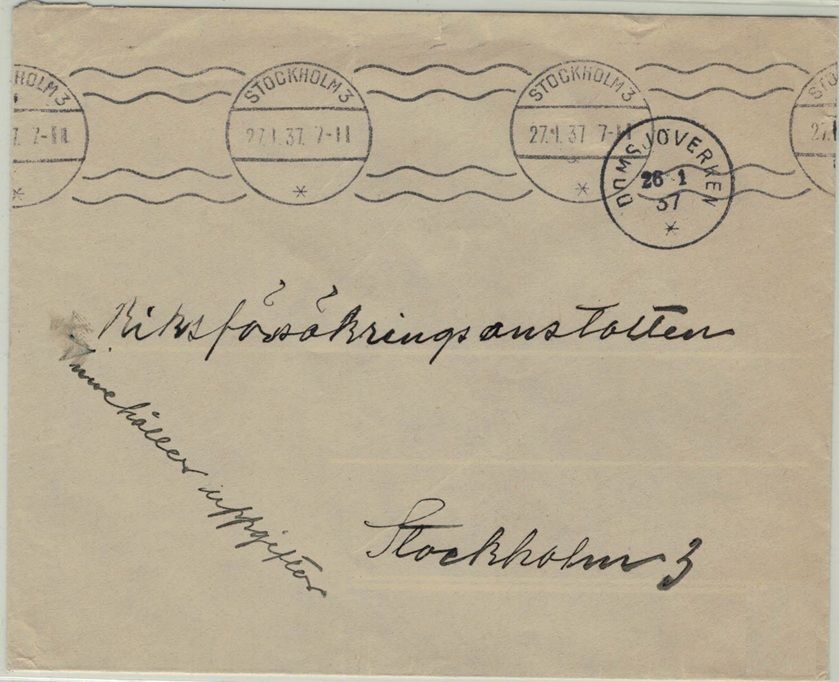 HOLM 3
7. 7-11
*
STOCKHOLM 3
27.1.37. 7-11
*
STOCKHOLM 3
27.1.37 7-11
*
STO
27.1
DOMSJÖVERKEN
26 1
37
*
Riksförsäkringsanstalten
Innehåller uppgifter
Stockholm 3